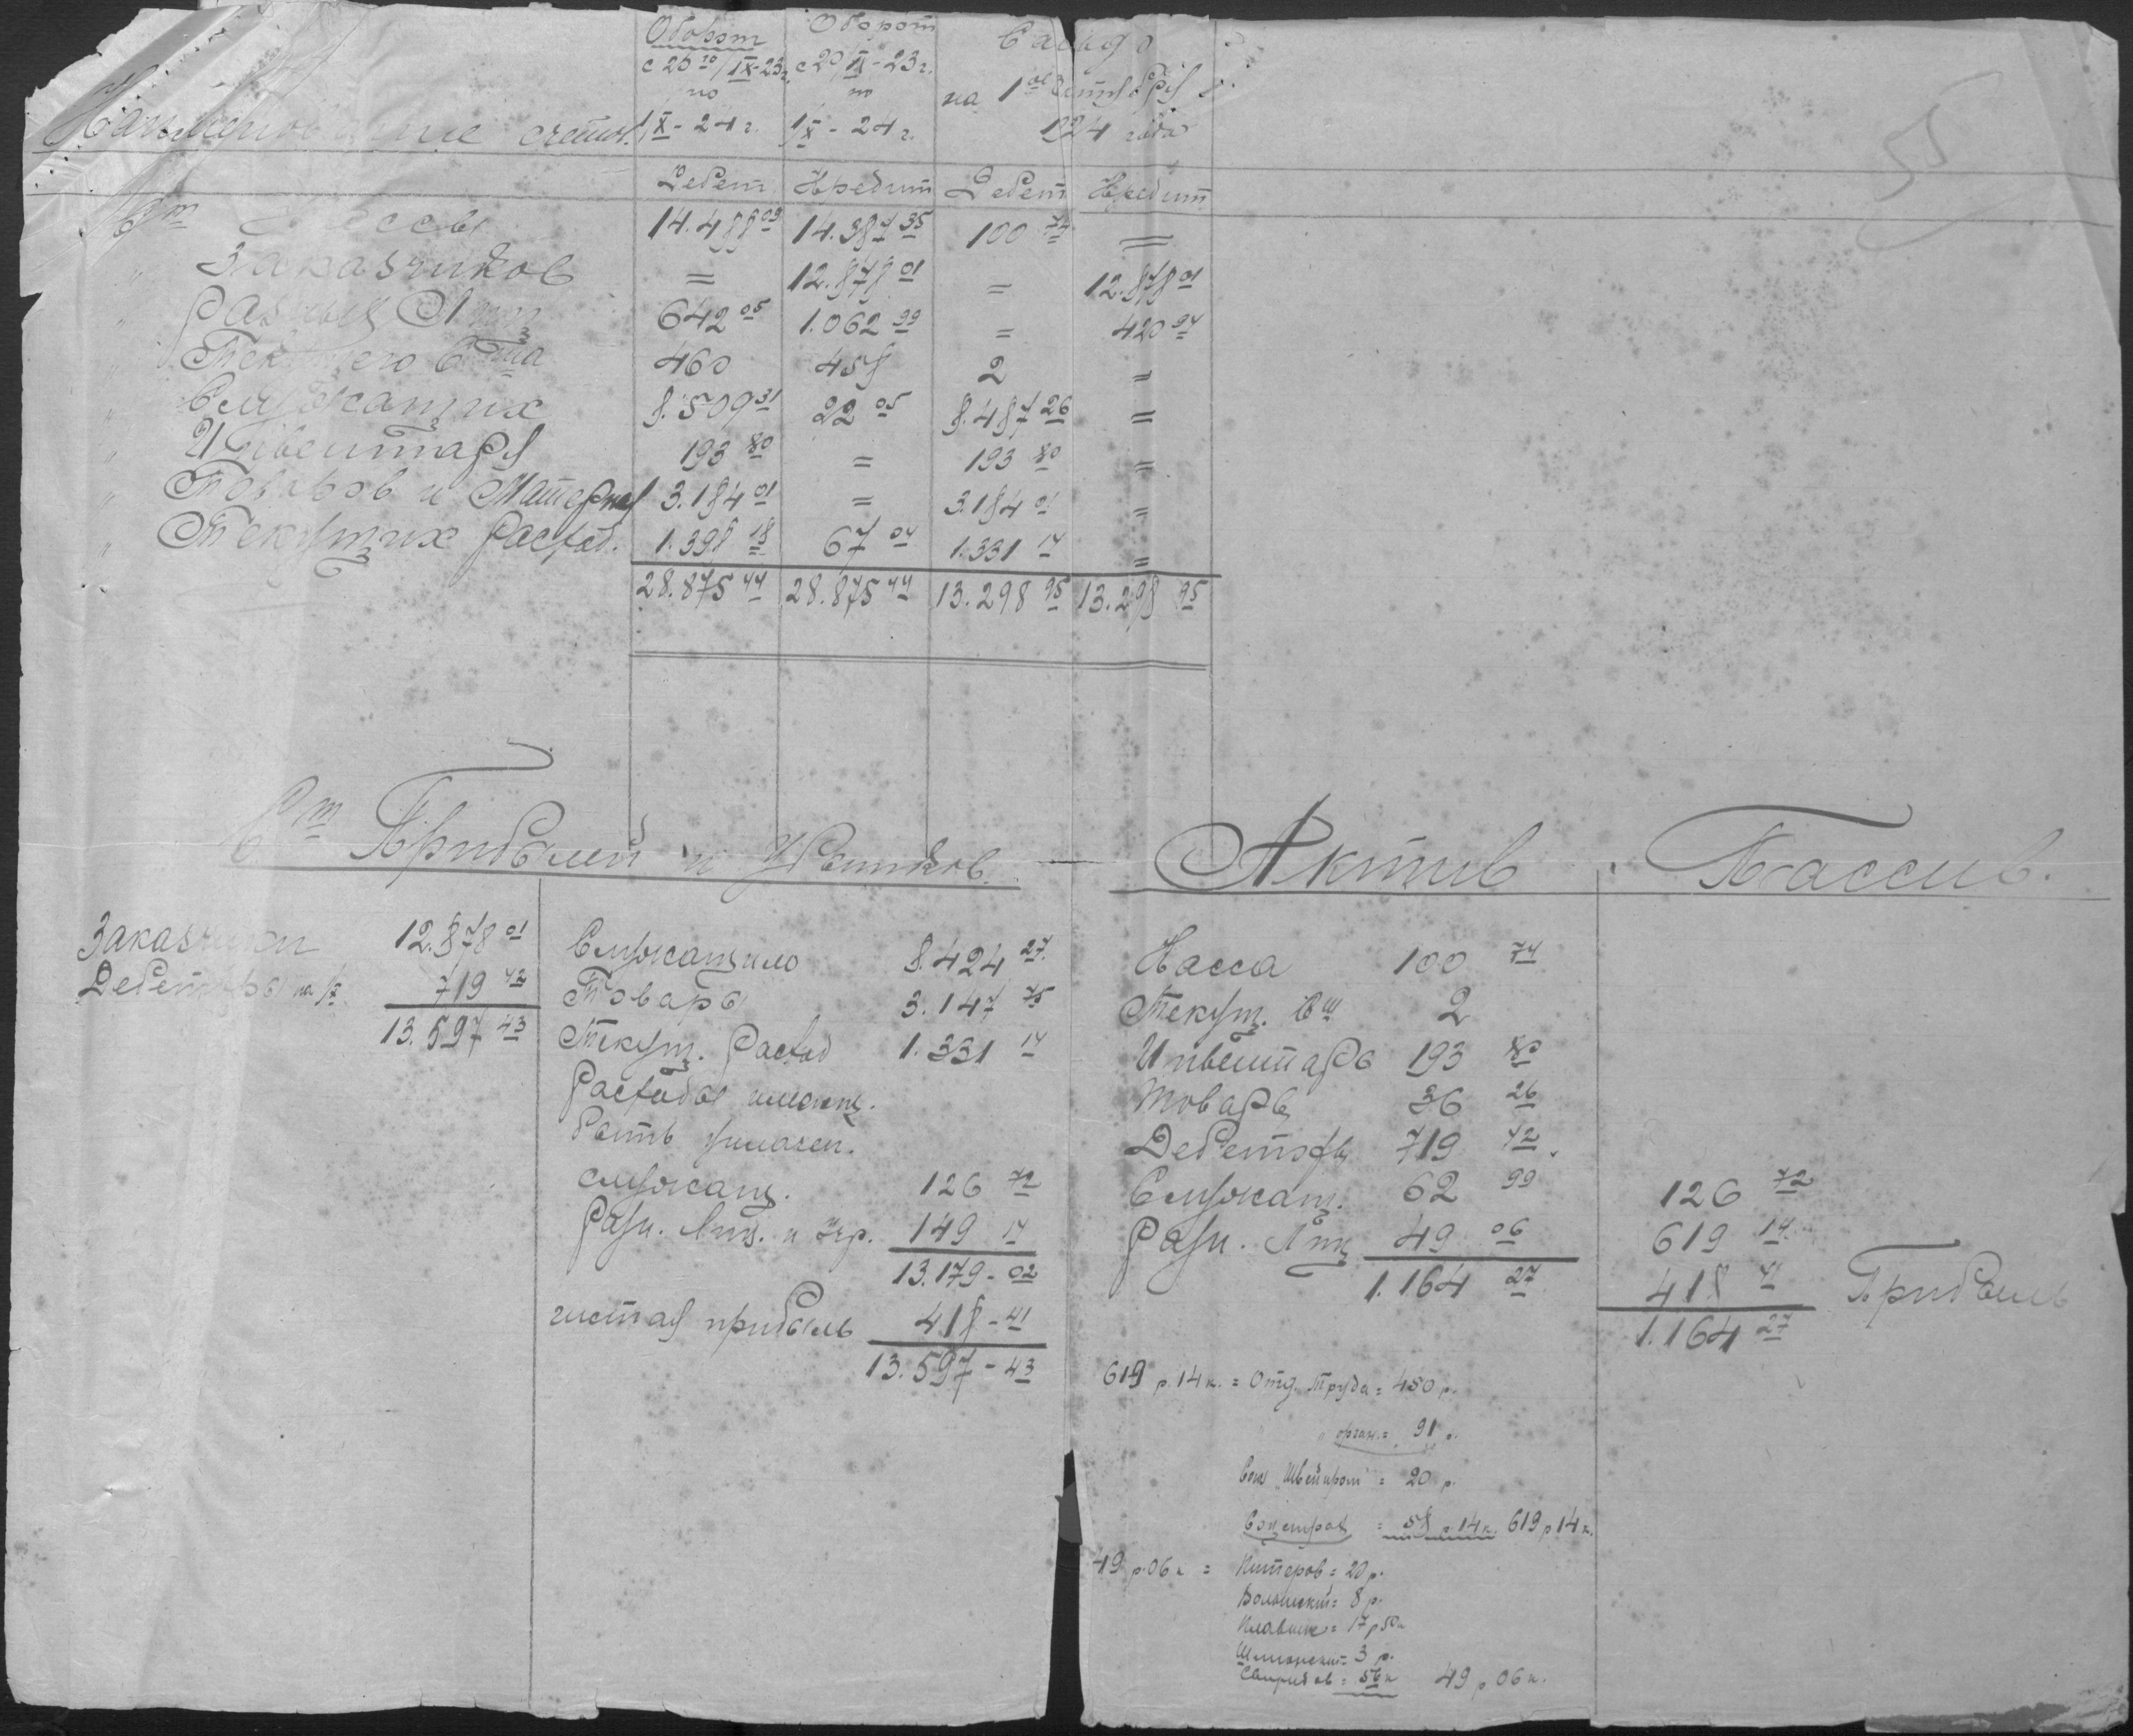 55
Оборот Оборот Сальдо
с 20го/IX-23г. с 20/IX-23г.
по по на 1ое Октября
Наименование счетов. 1/X-24г. 1/X-24г. 1924 года
Дебет Кредит Дебет Кредит
Сч Кассы 14.488 09 14.387 35 100 74 =
" Заказчиков = 12.878 01 = 12.878 01
" Разных Лиц 642 05 1.062 99 = 420 94
" Текущего Счета 460 458 2 =
" Служащих 8.509 31 22 05 8.487 26 =
" Инвентаря 193 80 = 193 80 =
" Товаров и Материал 3.184 01 = 3.184 01 =
" Текущих Расход. 1.398 18 67 04 1.331 14 =
28.875 44 28.875 44 13.298 95 13.298 95
Сч Прибылей и Убытков.
Заказчики 12.878 01
Дебеторы на 1/X 719 42
13.597 43
Служащим 8.424 27
Товары 3.147 75
Текущ. Расход 1.331 14
Расходы
быть уплачен.
служащ. 126 72
Разн. Лиц. и Учр. 149 14
13.179-02
чистая прибыль 418-41
13.597-43
Актив Пассив.
Касса 100 74
Текущ. Сч 2
Инвентарь 193 80
Товары 36 26
Дебеторы 719 42
Служащ. 62 99 126 72
Разн. Лиц 49 06 619 14
1.164 27 418 41 Прибыль
1.164 27
619 р. 14 к. = Отд. Труда = 450 р.
" " орган. = 91 р.
Союз Швейпром = 20 р.
Соцстрах = 58 р. 14 к. 619 р 14 к.
49 р. 06 к = Питеров = 20 р.
= 8 р.
= 17 р 50 к
= 3 р.
Свиридов = 56 к 49 р. 06 к.